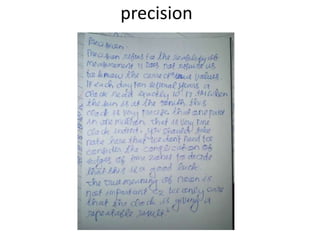 precision
Precision:
Precision refers to the repeatability of
measurement it does not require us
to know the correct true values.
If each day for several years a
clock read exactly 10:17 AM when
the sun is at the zenith, this
clock is very precise
that is very fine
clock indeed. You should take
note here that we don't need to
consider the complication of
edges of time zones to decide
that this is a good clock
The true meaning of noon is
not important
we only care
that the clock is giving a
repeatable result.